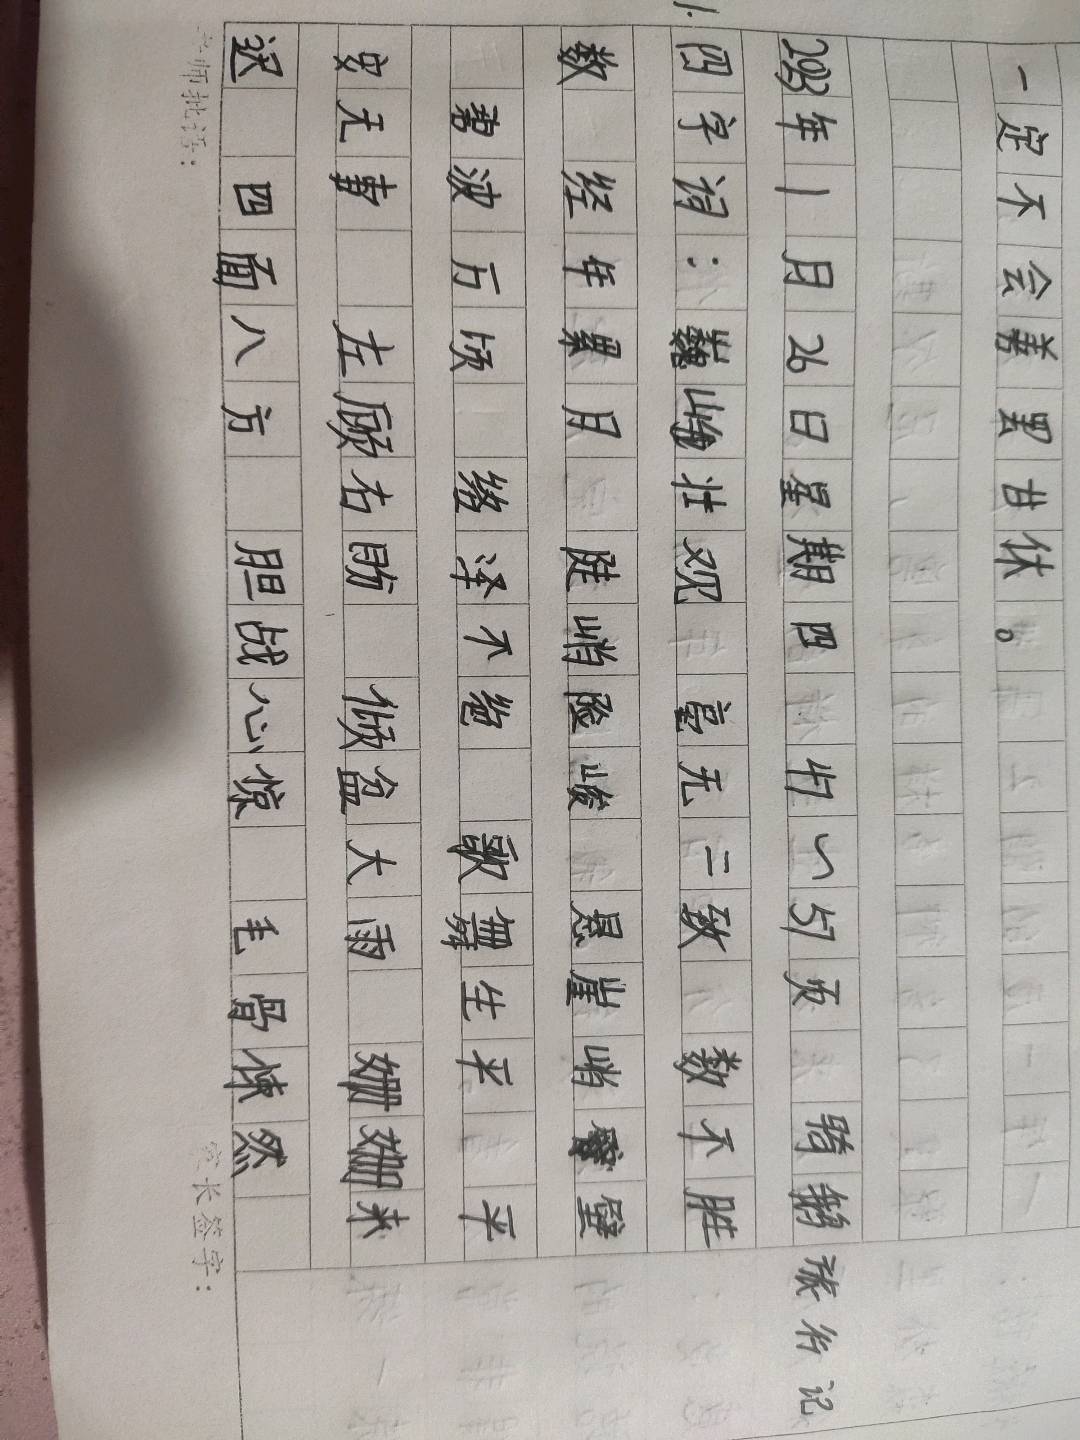 一定不会善罢甘休。
2023年1月26日星期四 47~57页 骑鹅旅行记
1.
四字词：巍峨壮观 毫无二致 数不胜
数 经年累月 陡峭险峻 悬崖峭壁
碧波万顷 络泽不绝 歌舞生平 平
安无事 左顾右盼 倾盆大雨 姗姗来
迟 四面八方 胆战心惊 毛骨悚然
老师批语：
家长签字：